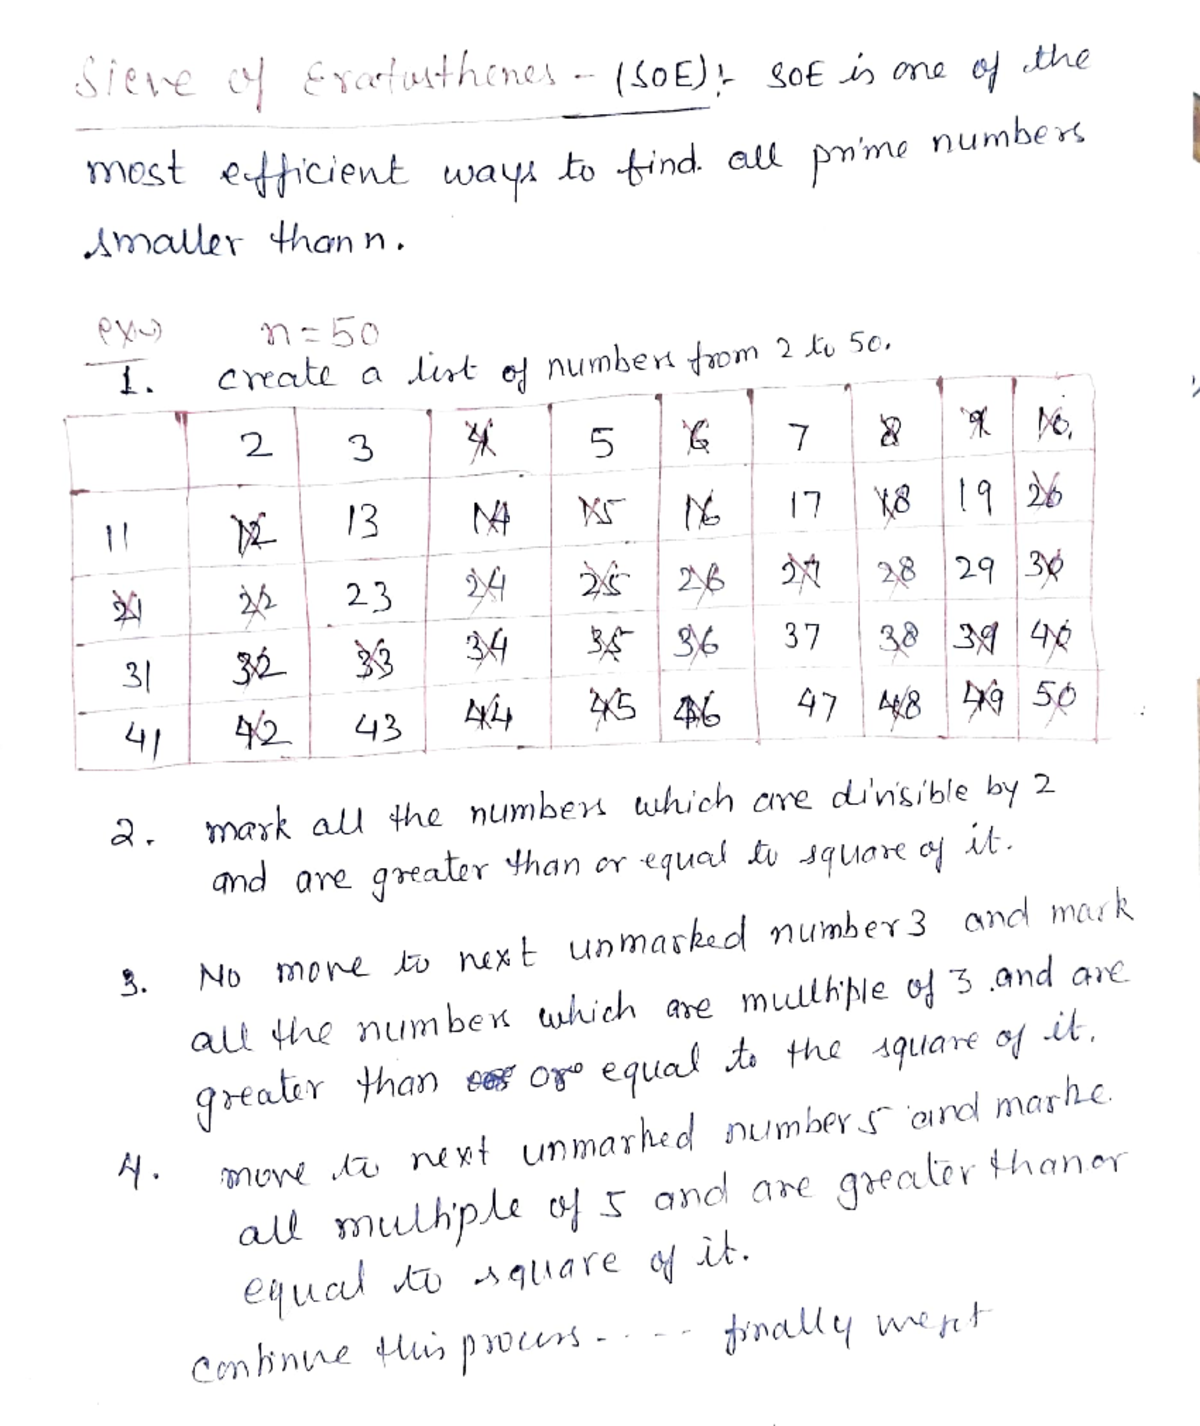 Sieve of Eratosthenes - (SOE):- SOE is one of the
most efficient ways to find all prime numbers
smaller than n.
ex:-) n = 50
1. create a list of numbers from 2 to 50.
2 3 4 5 6 7 8 9 10.
11 12 13 14 15 16 17 18 19 20
21 22 23 24 25 26 27 28 29 30
31 32 33 34 35 36 37 38 39 40
41 42 43 44 45 46 47 48 49 50
2. mark all the numbers which are divisible by 2
and are greater than or equal to square of it.
3. No move to next unmarked number 3 and mark
all the numbers which are multiple of 3 .and are
greater than or equal to the square of it.
4. move to next unmarked number 5 and marke.
all multiple of 5 and are greater than or
equal to square of it.
continue this process - . . - - finally